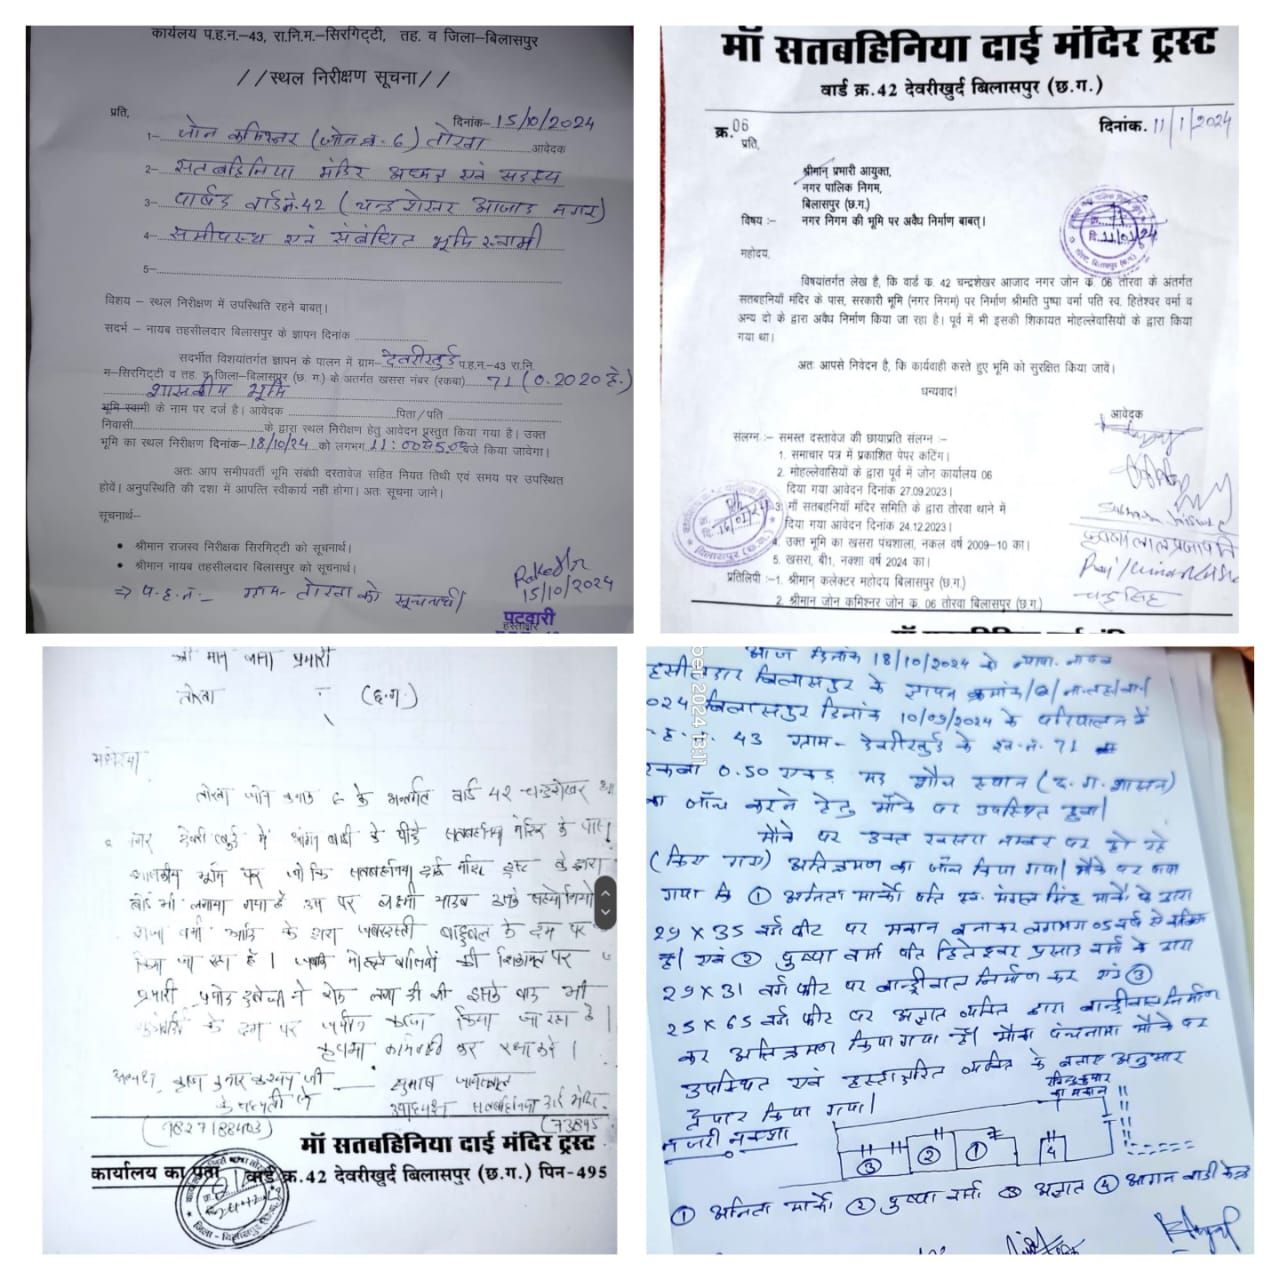 कार्यलय प.ह.न.-43, रा.नि.म.-सिरगिट्टी, तह. व जिला-बिलासपुर
//स्थल निरीक्षण सूचना//
प्रति,
दिनांक- 15/10/2024
1- जोन कमिश्नर (जोन क्र. 6) तोरवा आवेदक
2- सतबहिनिया मंदिर अध्यक्ष एवं सदस्य
3- पार्षद वार्ड नं. 42 (चन्द्रशेखर आजाद नगर)
4- समीपस्थ एवं संबंधित भूमि स्वामी
5-
विशय – स्थल निरीक्षण में उपस्थिति रहने बाबत्।
सदर्भ – नायब तहसीलदार बिलासपुर के ज्ञापन दिनांक
सदर्भीत विशयांतर्गत ज्ञापन के पालन में ग्राम- देवरीखुर्द प.ह.न.-43 रा.नि.
म-सिरगिट्टी व तह. व जिला-बिलासपुर (छ. ग.) के अंतर्गत खसरा नंबर (रकबा) 71 (0.2020 हे.)
शासकीय भूमि
भूमि स्वामी के नाम पर दर्ज है। आवेदक पिता/पति
निवासी के द्वारा स्थल निरीक्षण हेतु आवेदन प्रस्तुत किया गया है। उक्त
भूमि का स्थल निरीक्षण दिनांक- 18/10/24 को लगभग 11:00 बजे किया जावेगा।
अतः आप समीपवर्ती भूमि संबंधी दस्तावेज सहित नियत तिथी एवं समय पर उपस्थित
होवें। अनुपस्थिति की दशा में आपत्ति स्वीकार्य नही होगा। अतः सूचना जाने।
सूचनार्थ–
• श्रीमान राजस्व निरीक्षक सिरगिट्टी को सूचनार्थ।
• श्रीमान नायब तहसीलदार बिलासपुर को सूचनार्थ।
⇒ प.ह.नं.- ग्राम- तोरवा को सूचनार्थ।
15/10/2024
पटवारी
हस्ताक्षर
माँ सतबहिनिया दाई मंदिर ट्रस्ट
वार्ड क्र.42 देवरीखुर्द बिलासपुर (छ.ग.)
क्र. 06
दिनांक. 11/1/2024
प्रति,
श्रीमान् प्रभारी आयुक्त,
नगर पालिक निगम,
बिलासपुर (छ.ग.)
विषय :- नगर निगम की भूमि पर अवैध निर्माण बाबत्।
महोदय,
विषयांतर्गत लेख है, कि वार्ड क. 42 चन्द्रशेखर आजाद नगर जोन क. 06 तोरवा के अंतर्गत
सतबहनियाँ मंदिर के पास, सरकारी भूमि (नगर निगम) पर निर्माण श्रीमति पुष्पा वर्मा पति स्व. हितेश्वर वर्मा व
अन्य दो के द्वारा अवैध निर्माण किया जा रहा है। पूर्व में भी इसकी शिकायत मोहल्लेवासियों के द्वारा किया
गया था।
अतः आपसे निवेदन है, कि कार्यवाही करते हुए भूमि को सुरक्षित किया जावें।
धन्यवाद!
आवेदक
संलग्न :- समस्त दस्तावेज की छायाप्रति संलग्न :-
1. समाचार पत्र में प्रकाशित पेपर कटिंग।
2. मोहल्लेवासियों के द्वारा पूर्व में जोन कार्यालय 06
दिया गया आवेदन दिनांक 27.09.2023।
3. माँ सतबहनियां मंदिर समिति के द्वारा तोरवा थाने में
दिया गया आवेदन दिनांक 24.12.2023।
4. उक्त भूमि का खसरा पंचशाला, नकल वर्ष 2009-10 का।
5. खसरा, बी1, नक्शा वर्ष 2024 का।
प्रतिलिपी :-1. श्रीमान् कलेक्टर महोदय बिलासपुर (छ.ग.)
2. श्रीमान जोन कमिश्नर जोन क्र. 06 तोरवा बिलासपुर (छ.ग.)
कृष्णा लाल प्रजापति
श्री मान थाना प्रभारी
तोरवा - (छ.ग.)
महोदय
तोरवा जोन क्रमांक 6 के अन्तर्गत वार्ड 42 चन्द्रशेखर
नगर देवरी खुर्द में आंगन बाड़ी के पीछे सतबहनिया मंदिर के पास
शासकीय भूमि पर जो कि सतबहनिया दाई मंदिर ट्रस्ट के द्वारा
बोर्ड भी लगाया गया है उस पर लक्ष्मी यादव उसके सहयोगियों
राजा वर्मा आदि के द्वारा जबरदस्ती बाहुबल के दम पर
किया जा रहा है। जबकि मोहल्ले वासियों की शिकायत पर
प्रभारी प्रमोद दुबे जी ने रोक लगा दी थी इसके बाद भी
के दम पर कब्जा किया जा रहा है।
कृपया कार्यवाही कर रक्षा करें।
अध्यक्ष कृष्ण कुमार कश्यप जी
सुभाष
उपाध्यक्ष सतबहनिया दाई मंदिर
माँ सतबहिनिया दाई मंदिर ट्रस्ट
कार्यालय का पता वार्ड क्र.42 देवरीखुर्द बिलासपुर (छ.ग.) पिन-495
ber 2024 13:11
आज दिनांक 18/10/2024 को न्याया. नायब
तहसीलदार बिलासपुर के ज्ञापन क्रमांक
2024 बिलासपुर दिनांक 10/09/2024 के परिपालन में
प.ह.नं. 43 ग्राम- देवरीखुर्द के ख.नं. 71
रकबा 0.50 एकड़ मद शौच स्थान (छ.ग. शासन)
का जाँच करने हेतु मौके पर उपस्थित हुआ।
मौके पर उक्त खसरा नम्बर पर हो रहे
(किये गये) अतिक्रमण का जाँच किया गया। मौके पर पाया
गया कि ① अनिता मार्को पति स्व. मंगल सिंह मार्को के द्वारा
29 × 35 वर्ग फीट पर मकान बनाकर लगभग 05 वर्ष से काबिज
है। एवं ② पुष्पा वर्मा पति हितेश्वर प्रसाद वर्मा के द्वारा
29 × 31 वर्ग फीट पर बाउन्ड्रीवाल निर्माण कर एवं ③
25 × 65 वर्ग फीट पर अज्ञात व्यक्ति द्वारा बाउन्ड्रीवाल निर्माण
कर अतिक्रमण किया गया है। मौका पंचनामा मौके पर
उपस्थित एवं हस्ताक्षरित व्यक्ति के बताए अनुसार
तैयार किया गया।
का मकान
नजरी नक्शा
③ ② ① 4
① अनिता मार्को ② पुष्पा वर्मा ③ अज्ञात ④ आंगन बाड़ी केन्द्र